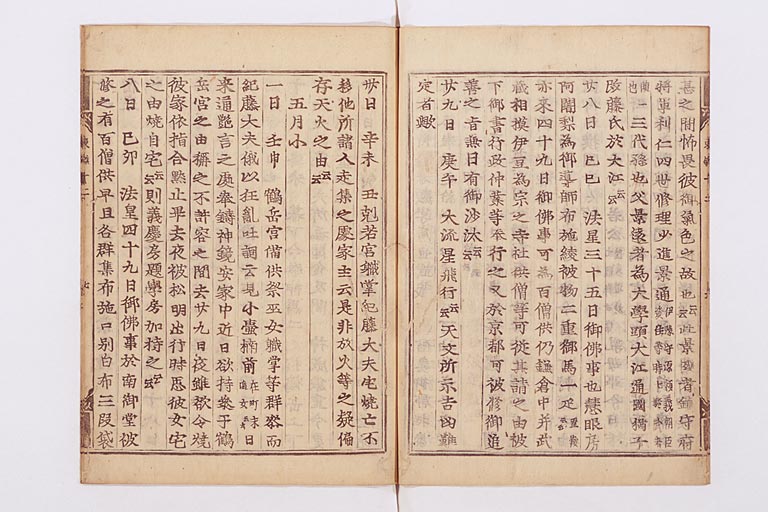 甚之間怖畏彼御氣色之故也云云此景國者鎮守府
将軍利仁四世修理少進景通
三代孫也父景遠者為大學頭大江通國猶子
改藤氏於大江云云
廿八日 己巳 法皇三十五日御佛事也慈眼房
阿闍梨為御導師布施綾被物二重御馬一疋置鞍云云
亦来四十九日御佛事可為百僧供仍鎌倉中并武
藏相摸伊豆為宗之寺社供僧等可從其請之由被
下御書行政仲業等奉行之又於京都可被修御追
善之旨無日有御沙汰云云
廿九日 庚午 大流星飛行云云天文所示吉凶難
定者歟
卅日 辛未 丑尅若宮職掌紀藤大夫宅燒亡不
移他所諸人走集之處家主云是非放火等之疑偏
存天火之由云云
五月小
一日 壬申 鶴岳宮備供祭巫女職掌等群參而
紀藤大夫俄以狂亂吐詞云見小壷楠前在町末遊女云云日
来通艶言之處奉鑄神鏡安家中近日欲持參于鶴
岳宮之由稱之不許容之間去廿九日夜雖欲令燒
彼家依指合黙止畢去夜被松明出行時思彼女宅
之由燒自宅云云則義慶房題學房加持之云云
八日 己卯 法皇四十九日御佛事於南御堂被
修之有百僧供早旦各群集布施口別白布三段袋